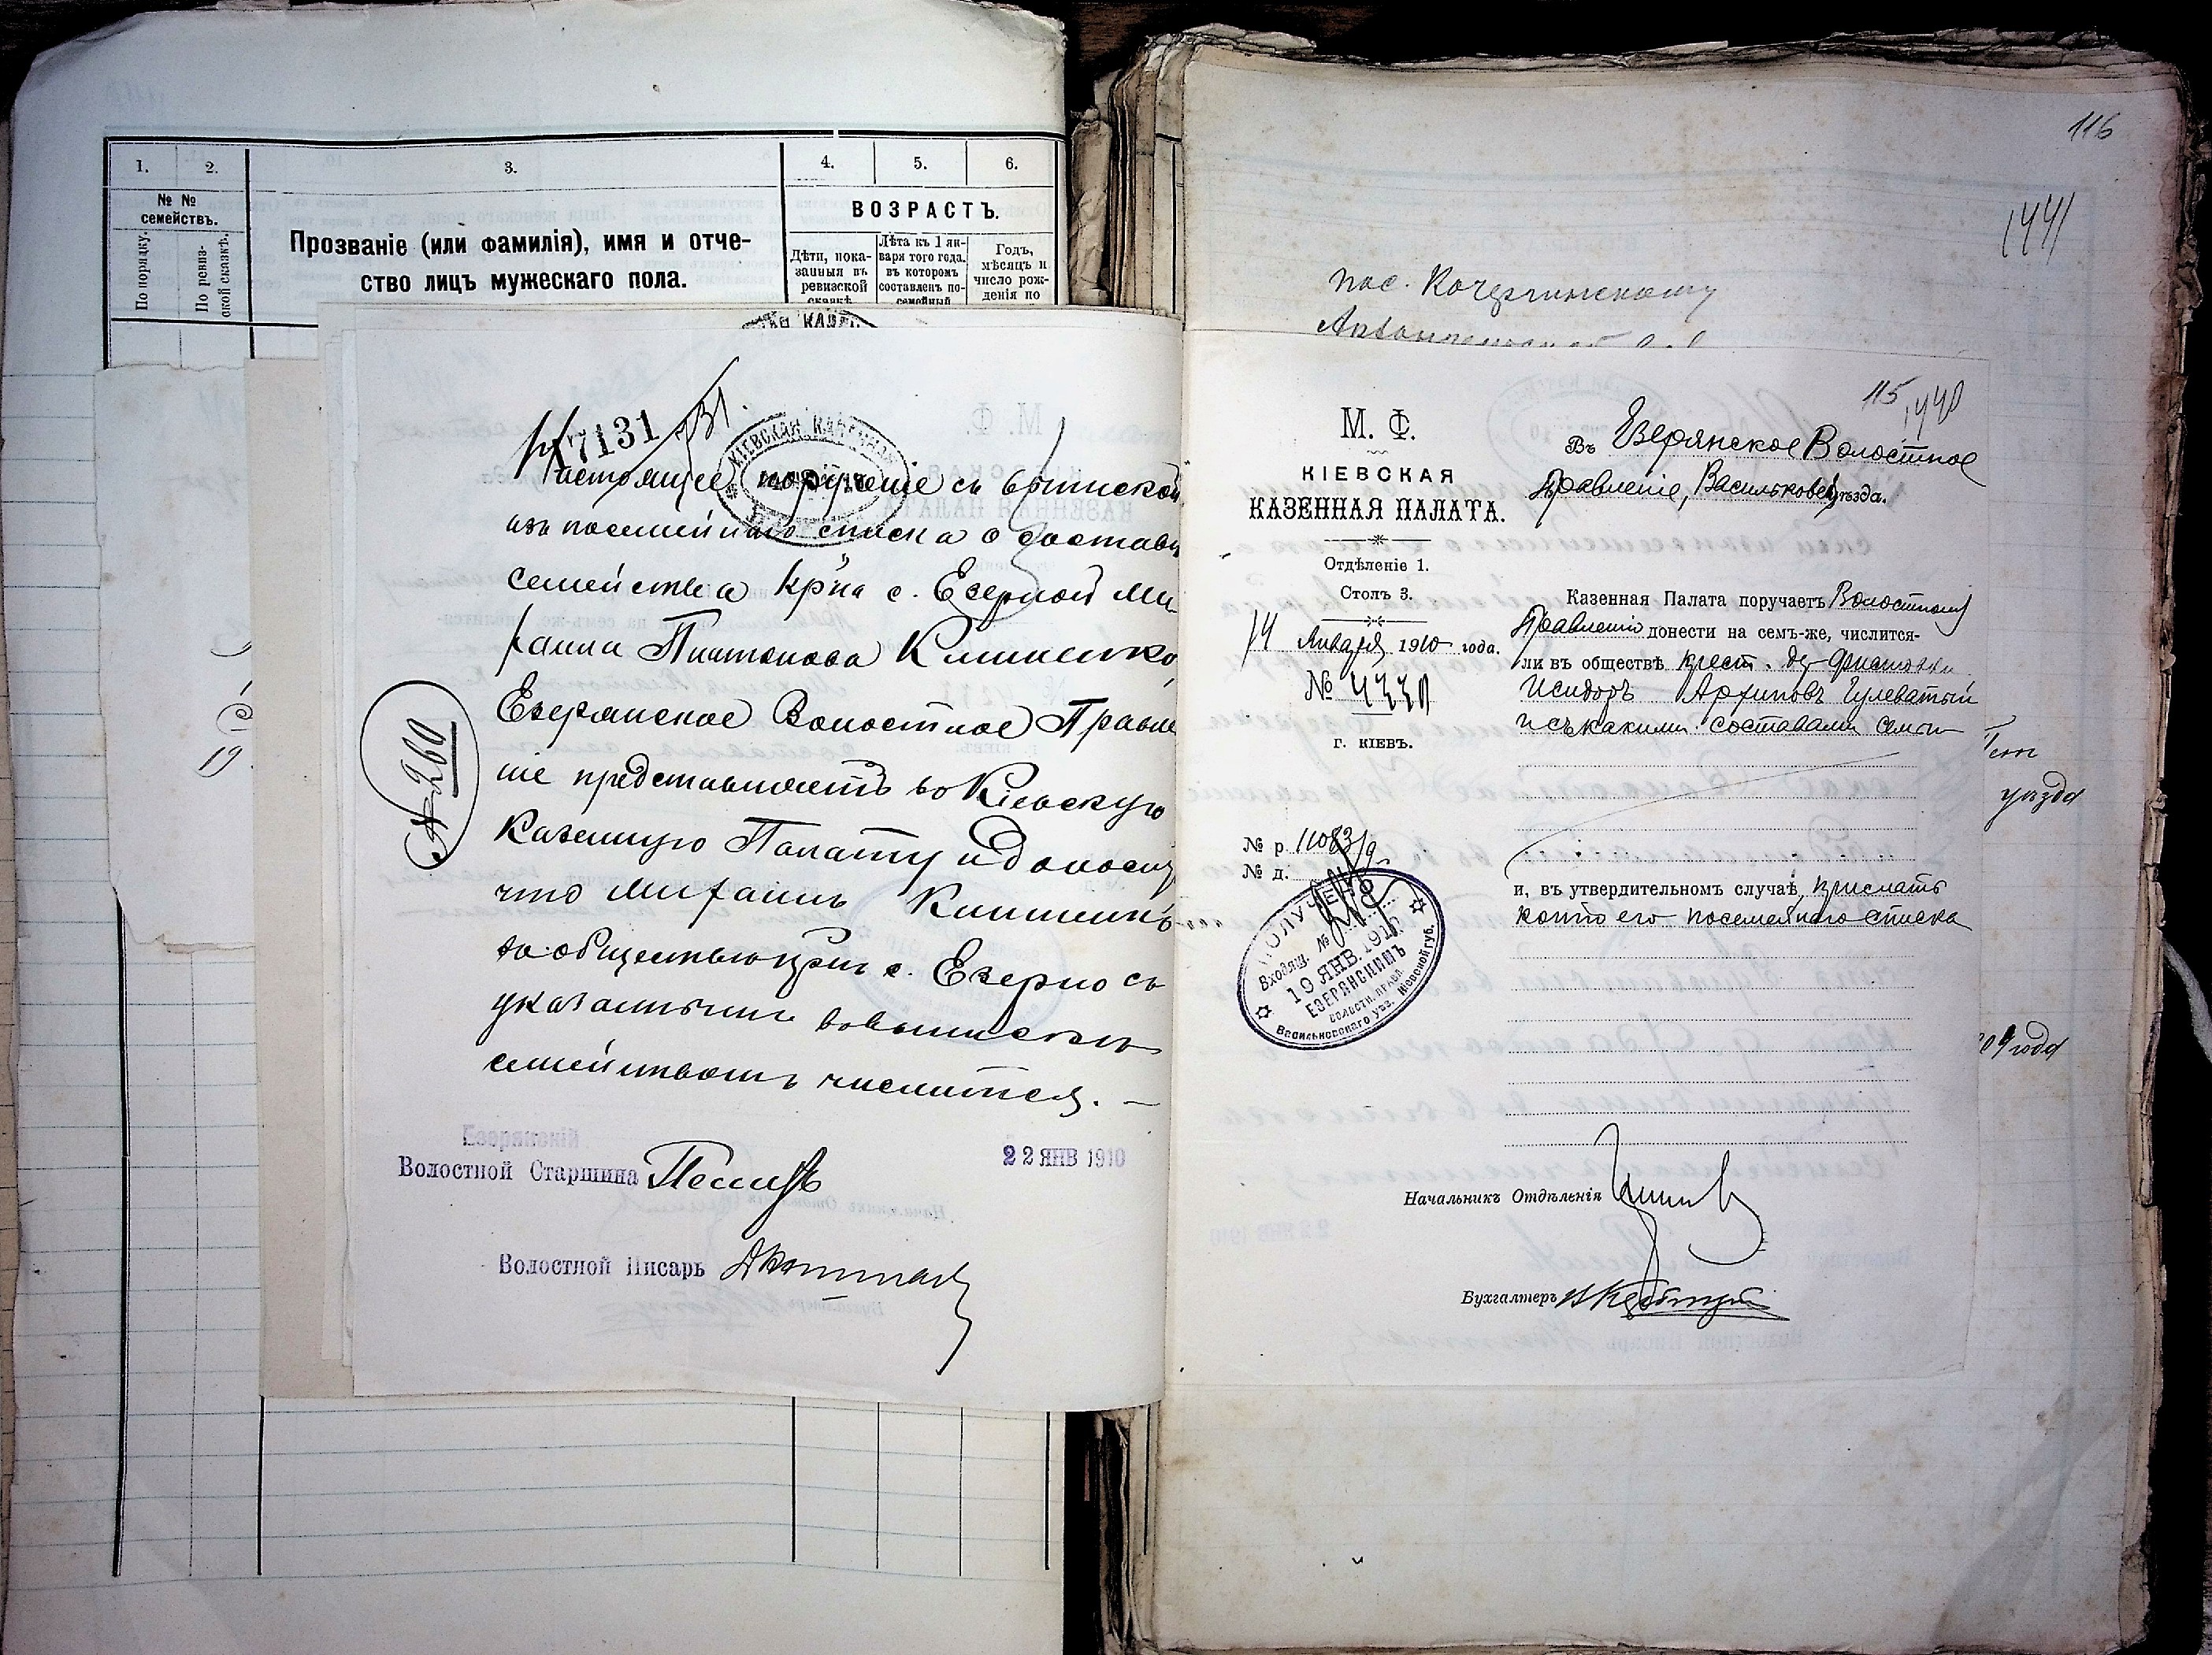 1. 2. 3. 4. 5. 6.
№ № семействъ.
По порядку.
По ревиз-
ской сказкѣ.
Прозваніе (или фамилія), имя и отче-
ство лицъ мужескаго пола.
ВОЗРАСТЪ.
Дѣти, пока-
занныя въ
ревизской
сказкѣ
Лѣта къ 1 ян-
варя того года,
въ которомъ
составленъ по-
семейный
Годъ,
мѣсяцъ и
число рож-
денія по
19
17131
731.
КІЕВСКАЯ КАЗЕННАЯ
Настоящее порученіе съ выпиской
изъ посемейнаго списка о составѣ
семейства кр-на с. Езерной Ми-
хаила Платонова Клименко,
Езерянское Волостное Правле
ніе представляетъ въ Кіевскую
Казенную Палату и доноситъ
что Михаилъ Клименко
въ обществѣ кр-нъ с. Езерно съ
указаннымъ въ выпискѣ
семействомъ числится. —
№ 260
Езерянскій
Волостной Старшина
22 ЯНВ 1910
Волостной Писарь
116
1441
пос. Кочержинскому
115
1440
М. Ф.
КІЕВСКАЯ
КАЗЕННАЯ ПАЛАТА.
Отдѣленіе 1.
Столъ 3.
14 Января 1910 года.
№
г. КІЕВЪ.
№ р. 11083/9
№ д.
ПОЛУЧЕНО
Входящ. №
19 ЯНВ. 1910
ЕЗЕРЯНСКИМЪ
ВОЛОСТН. ПРАВЛ.
Васильковскаго уѣз. Кіевской губ.
Въ Езерянское Волостное
Правленіе, Васильков. уѣзда.
Казенная Палата поручаетъ Волостному
Правленію донести на семъ-же, числится-
ли въ обществѣ крест. дер.
Исидоръ Архиповъ Гулеватый
и съ какимъ составомъ семьи
и, въ утвердительномъ случаѣ, прислать
копію его посемейнаго списка
Начальникъ Отдѣленія
Бухгалтеръ
уѣзда
года